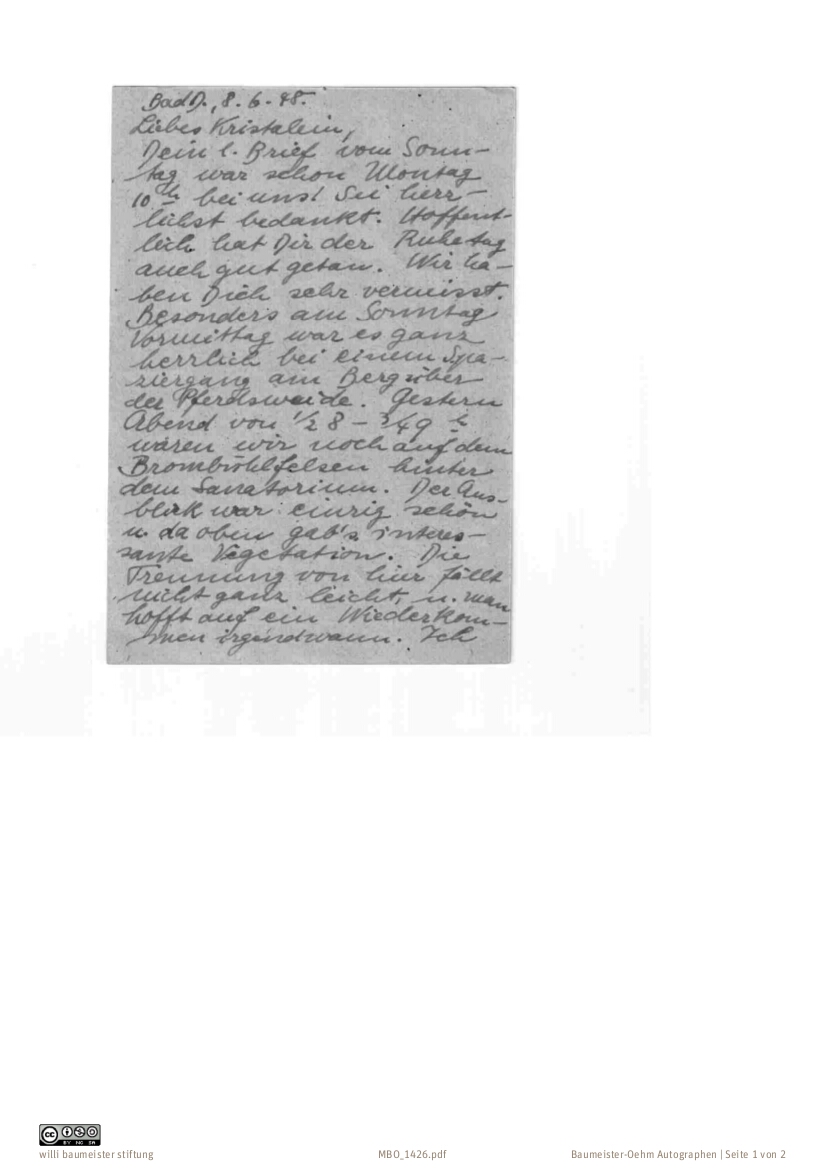 Bad D., 8. 6. 48.
Liebes Kristalein,
Dein l. Brief vom Sonn-
tag war schon Montag
10 h bei uns! Sei herz-
lichst bedankt. Hoffent-
lich hat Dir der Ruhetag
auch gut getan. Wir ha-
ben Dich sehr vermisst.
Besonders am Sonntag
Vormittag war es ganz
herrlich bei einem Spa-
ziergang am Berg über
der Pferdsweide. Gestern
Abend von 1/2 8 – 3/4 9 h
waren wir noch auf dem
hinter
dem Sanatorium. Der Aus-
blick war einzig schön
u. da oben gab's interes-
sante Vegetation. Die
Trennung von hier fällt
nicht ganz leicht, u. man
hofft auf ein Wiederkom-
men irgendwann. Ich
CC BY NC SA
willi baumeister stiftung
MBO_1426.pdf
Baumeister-Oehm Autographen | Seite 1 von 2